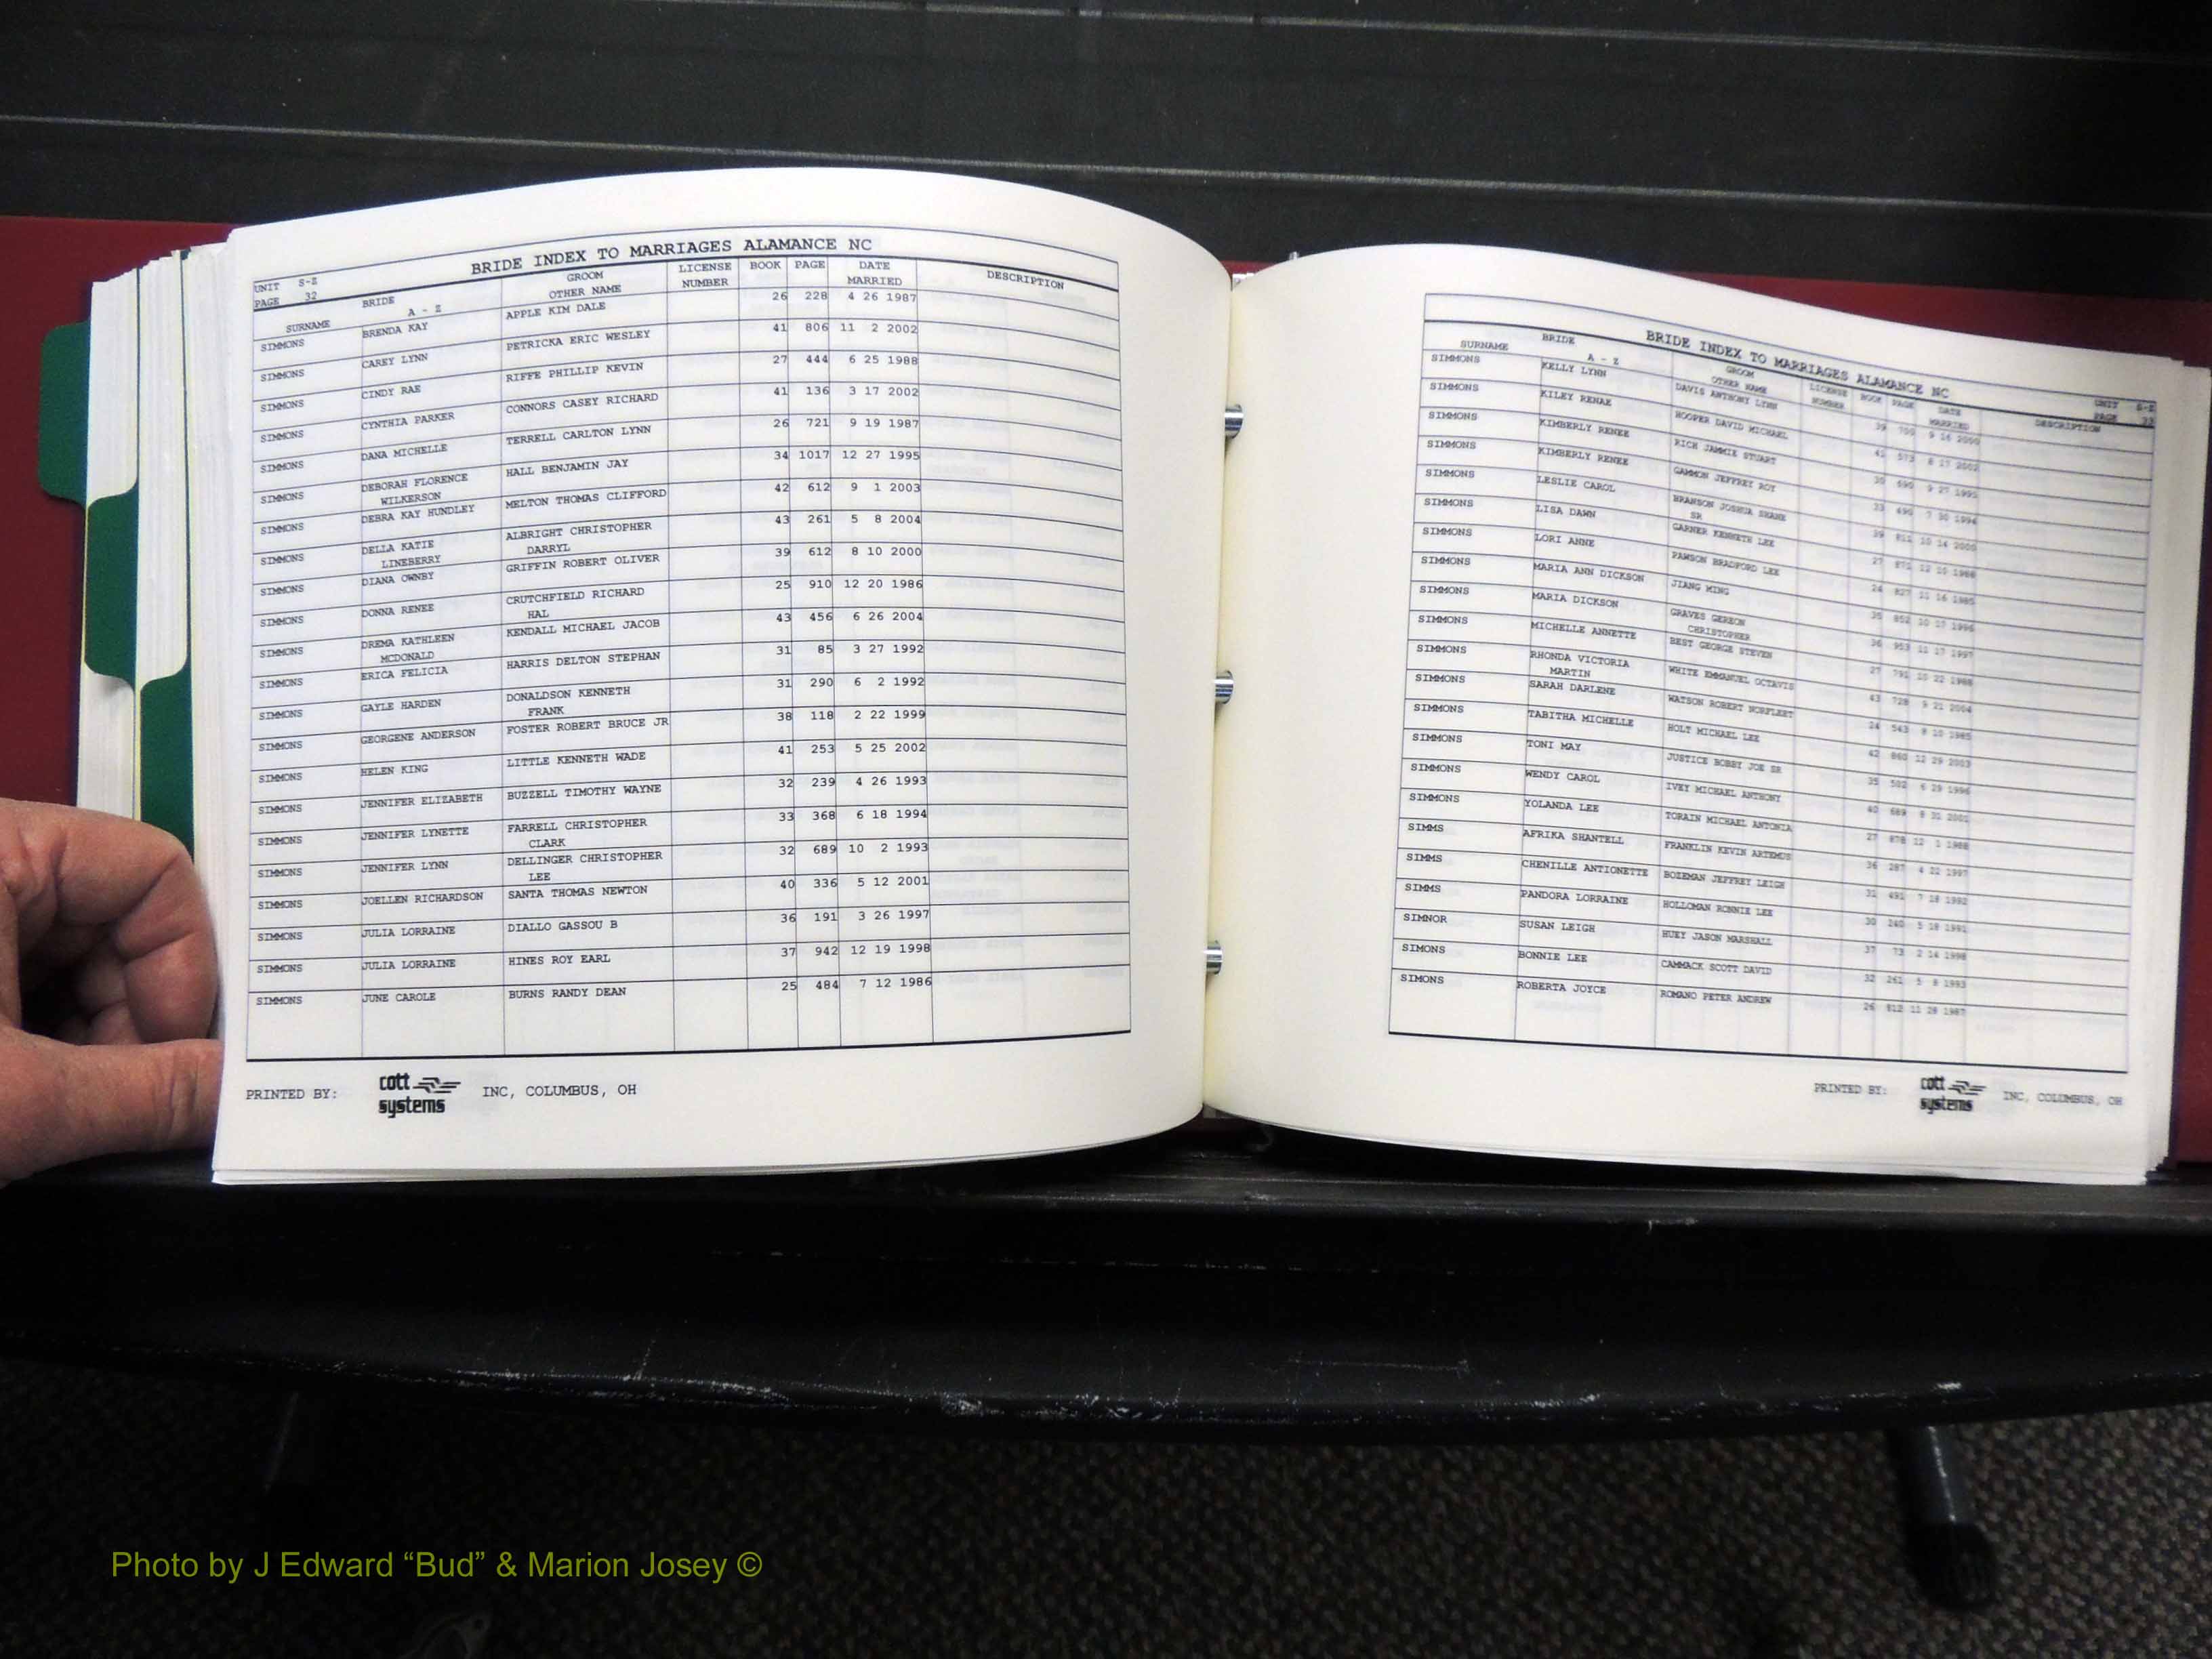 BRIDE INDEX TO MARRIAGES ALAMANCE NC
UNIT S-Z
PAGE 32
SURNAME BRIDE A - Z GROOM OTHER NAME LICENSE NUMBER BOOK PAGE DATE MARRIED DESCRIPTION
SIMMONS BRENDA KAY APPLE KIM DALE 26 228 4 26 1987
SIMMONS CAREY LYNN PETRICKA ERIC WESLEY 41 806 11 2 2002
SIMMONS CINDY RAE RIFFE PHILLIP KEVIN 27 444 6 25 1988
SIMMONS CYNTHIA PARKER CONNORS CASEY RICHARD 41 136 3 17 2002
SIMMONS DANA MICHELLE TERRELL CARLTON LYNN 26 721 9 19 1987
SIMMONS DEBORAH FLORENCE WILKERSON HALL BENJAMIN JAY 34 1017 12 27 1995
SIMMONS DEBRA KAY HUNDLEY MELTON THOMAS CLIFFORD 42 612 9 1 2003
SIMMONS DELLA KATIE LINEBERRY ALBRIGHT CHRISTOPHER DARRYL 43 261 5 8 2004
SIMMONS DIANA OWNBY GRIFFIN ROBERT OLIVER 39 612 8 10 2000
SIMMONS DONNA RENEE CRUTCHFIELD RICHARD HAL 25 910 12 20 1986
SIMMONS DREMA KATHLEEN MCDONALD KENDALL MICHAEL JACOB 43 456 6 26 2004
SIMMONS ERICA FELICIA HARRIS DELTON STEPHAN 31 85 3 27 1992
SIMMONS GAYLE HARDEN DONALDSON KENNETH FRANK 31 290 6 2 1992
SIMMONS GEORGENE ANDERSON FOSTER ROBERT BRUCE JR 38 118 2 22 1999
SIMMONS HELEN KING LITTLE KENNETH WADE 41 253 5 25 2002
SIMMONS JENNIFER ELIZABETH BUZZELL TIMOTHY WAYNE 32 239 4 26 1993
SIMMONS JENNIFER LYNETTE FARRELL CHRISTOPHER CLARK 33 368 6 18 1994
SIMMONS JENNIFER LYNN DELLINGER CHRISTOPHER LEE 32 689 10 2 1993
SIMMONS JOELLEN RICHARDSON SANTA THOMAS NEWTON 40 336 5 12 2001
SIMMONS JULIA LORRAINE DIALLO GASSOU B 36 191 3 26 1997
SIMMONS JULIA LORRAINE HINES ROY EARL 37 942 12 19 1998
SIMMONS JUNE CAROLE BURNS RANDY DEAN 25 484 7 12 1986
PRINTED BY: cott systems INC, COLUMBUS, OH
BRIDE INDEX TO MARRIAGES ALAMANCE NC
UNIT S-Z
PAGE 33
SURNAME BRIDE A - Z GROOM OTHER NAME LICENSE NUMBER BOOK PAGE DATE MARRIED DESCRIPTION
SIMMONS KELLY LYNN DAVIS ANTHONY LYNN 39 9 16 2000
SIMMONS KILEY RENAE HOOPER DAVID MICHAEL 41 573 8 17 2002
SIMMONS KIMBERLY RENEE RICH JAMMIE STUART 30 690 9 27 1991
SIMMONS KIMBERLY RENEE GAMMON JEFFREY ROY 33 490 7 30 1994
SIMMONS LESLIE CAROL BRANSON JOSHUA SHANE SR 39 811 10 14 2000
SIMMONS LISA DAWN GARNER KENNETH LEE 27 12 10 1988
SIMMONS LORI ANNE PAWSON BRADFORD LEE 24 827 11 16 1985
SIMMONS MARIA ANN DICKSON JIANG MING 35 852 10 17 1996
SIMMONS MARIA DICKSON GRAVES GEREON CHRISTOPHER 36 953 11 17 1997
SIMMONS MICHELLE ANNETTE BEST GEORGE STEVEN 27 791 10 22 1988
SIMMONS RHONDA VICTORIA MARTIN WHITE EMMANUEL OCTAVIS 43 728 9 21 2004
SIMMONS SARAH DARLENE WATSON ROBERT NORFLEET 24 543 8 10 1985
SIMMONS TABITHA MICHELLE HOLT MICHAEL LEE 42 860 12 29 2003
SIMMONS TONI MAY JUSTICE BOBBY JOE SR 35 502 6 29 1996
SIMMONS WENDY CAROL IVEY MICHAEL ANTHONY 40 689 8 31 2001
SIMMONS YOLANDA LEE TORAIN MICHAEL ANTONIA 27 878 12 1 1988
SIMMS AFRIKA SHANTELL FRANKLIN KEVIN ARTEMUS 36 287 4 22 1997
SIMMS CHENILLE ANTIONETTE BOZEMAN JEFFREY LEIGH 31 491 7 18 1992
SIMMS PANDORA LORRAINE HOLLOMAN RONNIE LEE 30 240 5 18 1991
SIMNOR SUSAN LEIGH HUEY JASON MARSHALL 37 73 2 14 1998
SIMONS BONNIE LEE CAMMACK SCOTT DAVID 32 261 5 8 1993
SIMONS ROBERTA JOYCE ROMANO PETER ANDREW 26 912 11 28 1987
PRINTED BY: cott systems INC, COLUMBUS, OH
Photo by J Edward “Bud” & Marion Josey ©